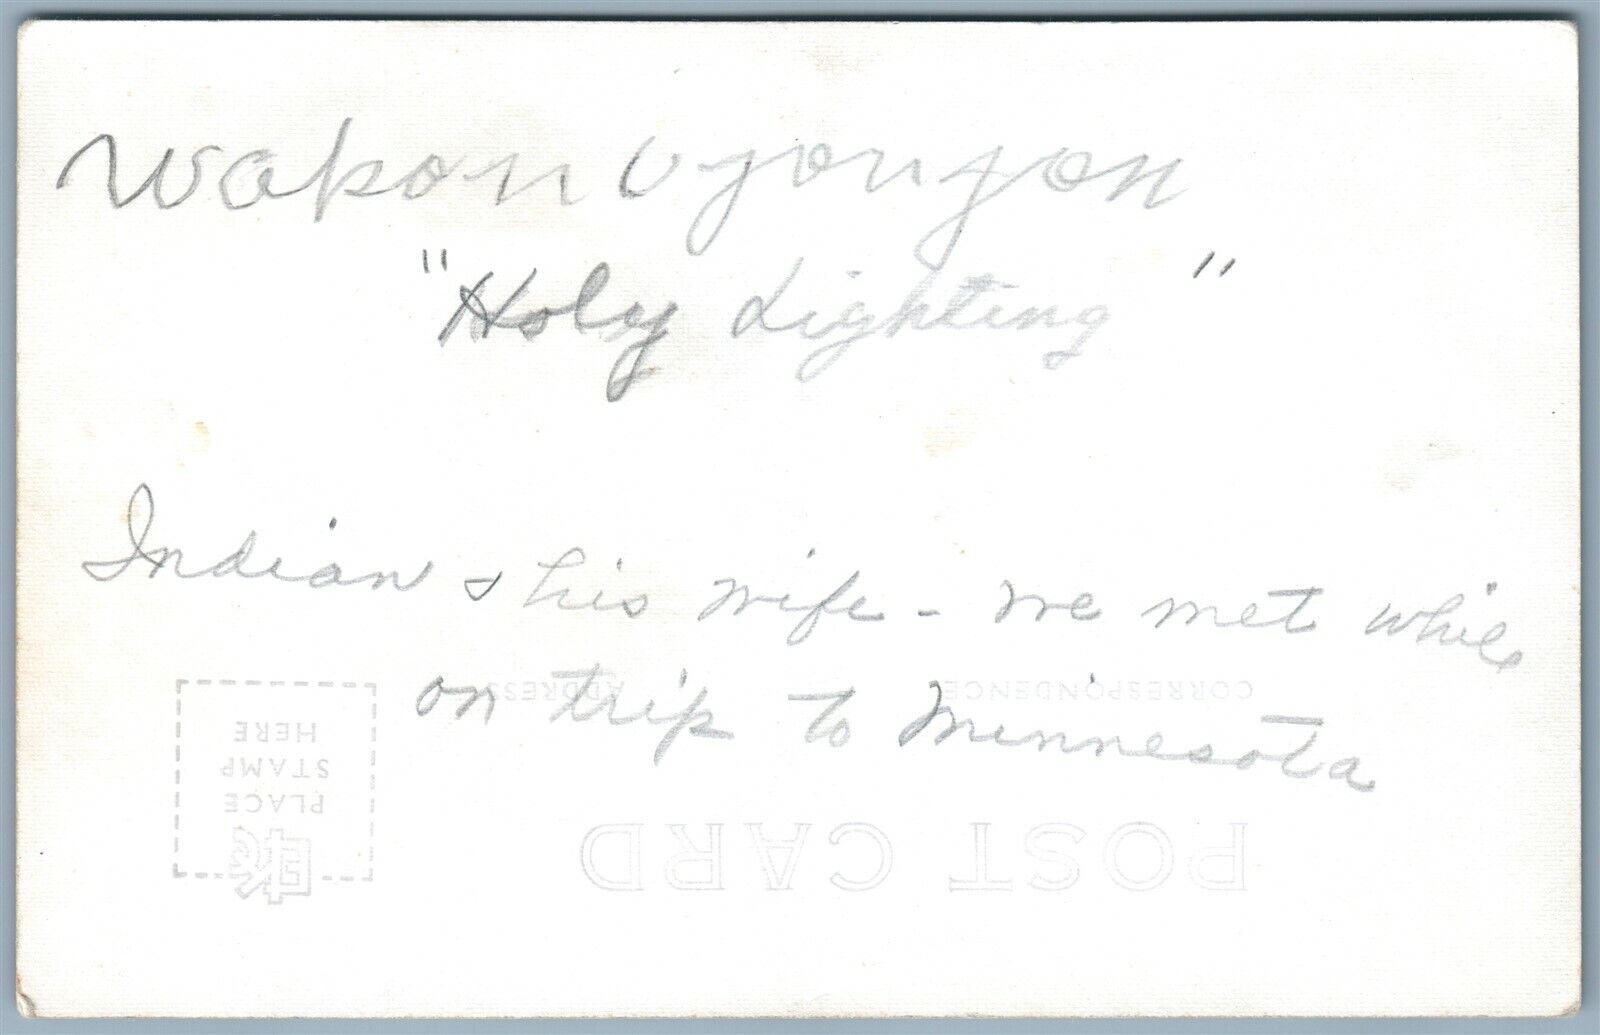 "Holy Lighting"
Indian & his wife - we met while
on trip to Minnesota
CORRESPONDENCE
ADDRESS
PLACE
STAMP
HERE
POST CARD
EKC